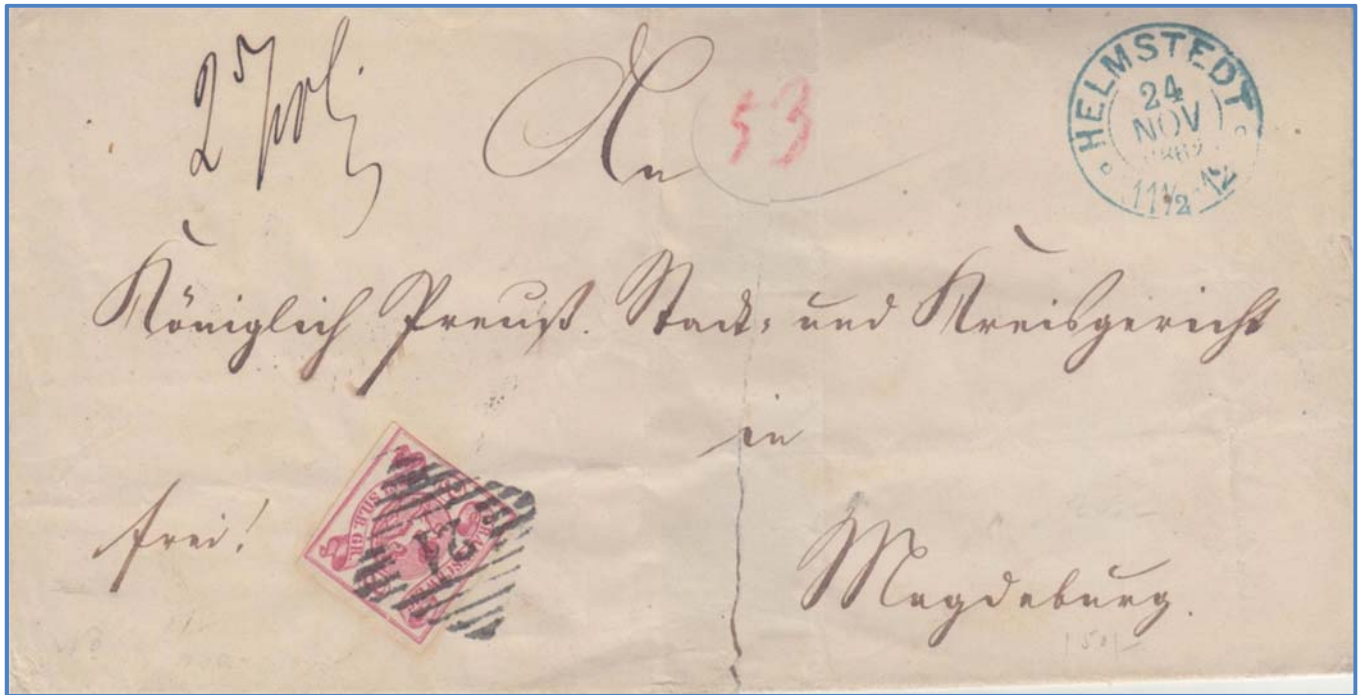 An 53
HELMSTEDT
24
NOV
11½-12
Königlich Preuß. Stadt- und Kreisgericht
in
Magdeburg.
frei!
SILB. GR.